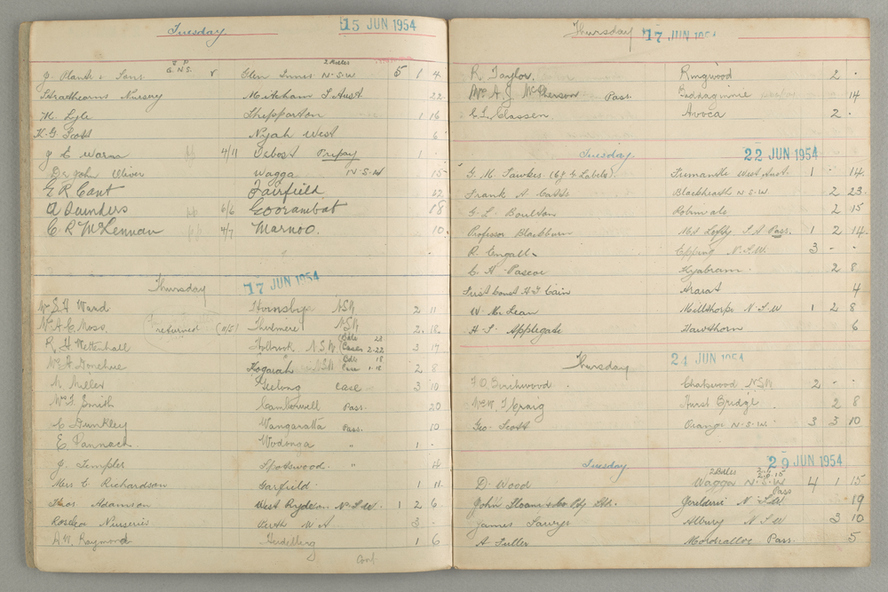 Tuesday 15 JUN 1954
2 Bales
& Sons Glen Innes N.S.W 5 1 4
Strathearns Nursery Mitcham S. Aust 22
Lyle Shepparton 1 16
K. G. Scott Nyah West 6
J C Warn 4/11 Orbost Prepay 1 -
Dr John Oliver Wagga N.S.W 15
E R Cant Fairfield
A Saunders 6/6 Goorambat 18
C. R McLennan 4/7 Marnoo. 10
Thursday 17 JUN 1954
Ward Hornsby NSW 2 11
Moss returned Thirlmere NSW 2
R. H Wettenhall Holbrook N.S.W 3 17
Donehue Kogarah 2 8
Miller Geelong Case 3 10
Smith Camberwell Pass. 20
Wangaratta Pass. 10
E. Pannach Wodonga " 1 -
J. Temple Spotswood "
Mrs C Richardson Garfield 1 11
Thos Adamson West Ryde N.S.W. 1 2 6
Roslea Nurseries Perth W A 3 -
Raymond 1 6
Cont.
Thursday 17 JUN 1954
R. Taylor. Ringwood 2 -
Mrs A. J. McPherson Pass. 14
Classen Avoca 2 -
Tuesday 22 JUN 1954
G. M. Fawkes (6/6 Labels) Fremantle West Aust. 1 - 14
Frank A Blackheath N.S.W 2 23
G. L. Boulton Robinvale 2 15
Professor Blackburn S.A Pass. 1 2 14
R. Engall Epping N.S.W. 3 - -
C H Pascoe Kyabram 2 8
Cain Ararat 4
W. McLean Millthorpe N.S.W 1 2 8
H. S. Applegate Hawthorn 6
Thursday 24 JUN 1954
Birchwood Chatswood NSW 2 - -
Craig Hurst Bridge 2 8
Geo. Scott Orange N.S.W. 3 3 10
Tuesday 29 JUN 1954
2 Bales
D. Wood Wagga N.S.W 4 1 15
Pass
John Sloane & Co Pty Ltd. Jerilderie N.S.W 19
James Albury N.S.W 3 10
A Fuller Mordialloc Pass. 5